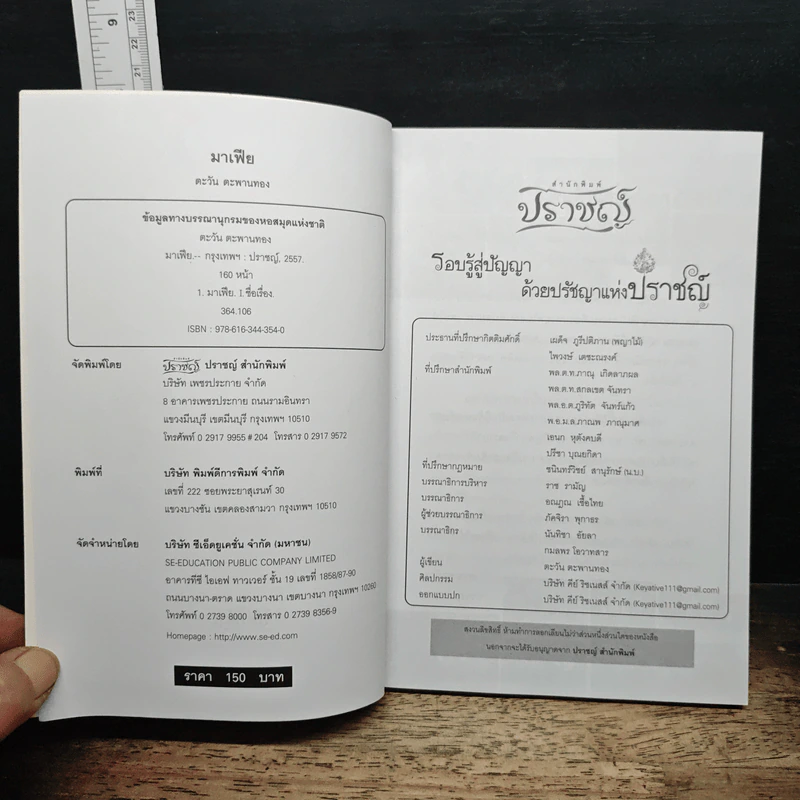 9
23
22
21
มาเฟีย
ตะวัน ตะพานทอง
ข้อมูลทางบรรณานุกรมของหอสมุดแห่งชาติ
ตะวัน ตะพานทอง
มาเฟีย.-- กรุงเทพฯ : ปราชญ์, 2557.
160 หน้า
1. มาเฟีย. I.ชื่อเรื่อง.
364.106
ISBN : 978-616-344-354-0
จัดพิมพ์โดย ปราชญ์ ปราชญ์ สำนักพิมพ์
บริษัท เพชรประกาย จำกัด
8 อาคารเพชรประกาย ถนนรามอินทรา
แขวงมีนบุรี เขตมีนบุรี กรุงเทพฯ 10510
โทรศัพท์ 0 2917 9955 # 204 โทรสาร 0 2917 9572
พิมพ์ที่ บริษัท พิมพ์ดีการพิมพ์ จำกัด
เลขที่ 222 ซอยพระยาสุเรนท์ 30
แขวงบางชัน เขตคลองสามวา กรุงเทพฯ 10510
จัดจำหน่ายโดย บริษัท ซีเอ็ดยูเคชั่น จำกัด (มหาชน)
SE-EDUCATION PUBLIC COMPANY LIMITED
อาคารทีซี ไอเอฟ ทาวเวอร์ ชั้น 19 เลขที่ 1858/87-90
ถนนบางนา-ตราด แขวงบางนา เขตบางนา กรุงเทพฯ 10260
โทรศัพท์ 0 2739 8000 โทรสาร 0 2739 8356-9
Homepage : http://www.se-ed.com
ราคา 150 บาท
สำนักพิมพ์
ปราชญ์
รอบรู้สู่ปัญญา
ด้วยปรัชญาแห่งปราชญ์
ประธานที่ปรึกษากิตติมศักดิ์ เผด็จ ภูรีปติภาน (พญาไม้)
ไพวงษ์ เตชะณรงค์
ที่ปรึกษาสำนักพิมพ์ พล.ต.ท.ภาณุ เกิดลาภผล
พล.ต.ท.สกลเขต จันทรา
พล.อ.ต.ภูริทัต จันทร์แก้ว
พ.อ.ม.ล.ภาณพ ภาณุมาศ
เอนก หุตังคบดี
ปรีชา บุณยกิดา
ที่ปรึกษากฎหมาย ชนินทร์วิชย์ สานุรักษ์ (น.บ.)
บรรณาธิการบริหาร ราช รามัญ
บรรณาธิการ อณฏณ เชื้อไทย
ผู้ช่วยบรรณาธิการ ภัคจิรา พุกาธร
บรรณาธิกร นันทิชา อัยลา
กมลพร โอวาทสาร
ผู้เขียน ตะวัน ตะพานทอง
ศิลปกรรม บริษัท คีย์ ริชเนสส์ จำกัด (Keyative111@gmail.com)
ออกแบบปก บริษัท คีย์ ริชเนสส์ จำกัด (Keyative111@gmail.com)
สงวนลิขสิทธิ์ ห้ามทำการลอกเลียนไม่ว่าส่วนหนึ่งส่วนใดของหนังสือ
นอกจากจะได้รับอนุญาตจาก ปราชญ์ สำนักพิมพ์